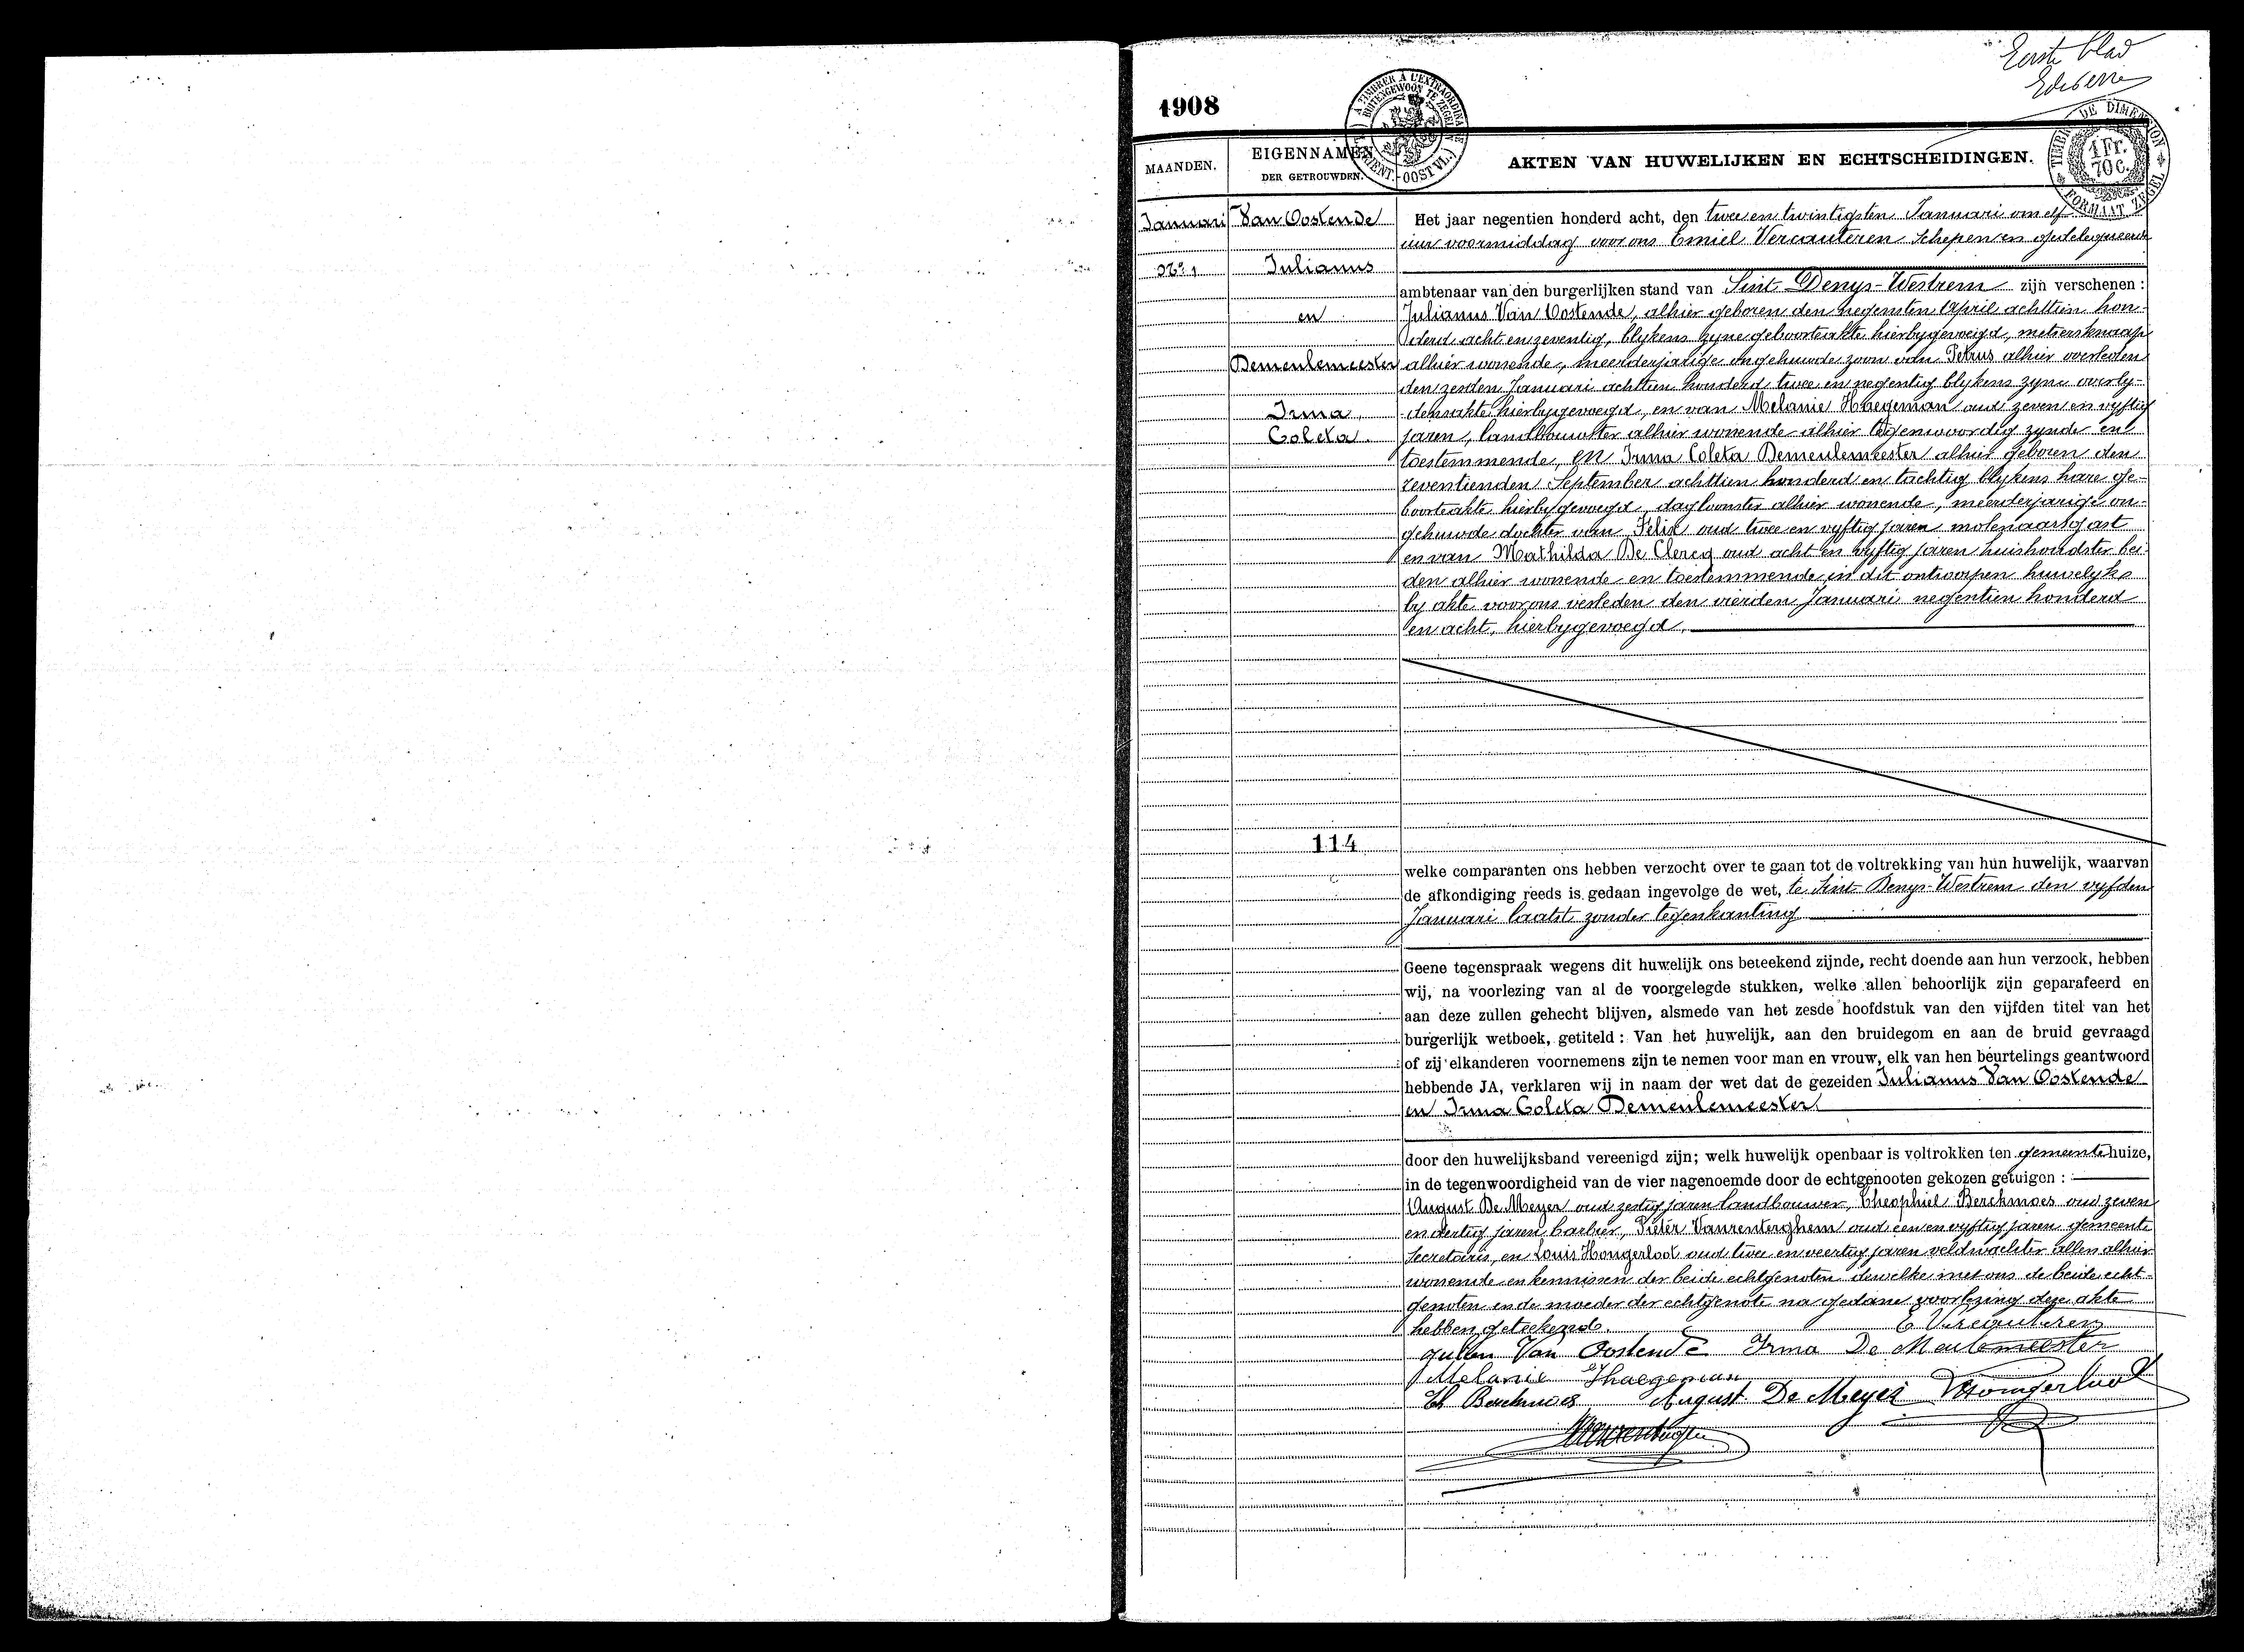 Eerste blad
1908
A TIMBRER A L'EXTRAORDINAIRE
BUITENGEWOON TE ZEGELEN
OOST VL.
TIMBRE DE DIMENSION
1 Fr.
70 C.
FORMAAT ZEGEL
MAANDEN.
EIGENNAMEN
DER GETROUWDEN.
AKTEN VAN HUWELIJKEN EN ECHTSCHEIDINGEN.
Januari
No 1
Van Oostende
Julianus
en
Demeulemeester
Irma
Coleta.
114
Het jaar negentien honderd acht, den twee en twintigsten Januari om elf
uur voormiddag voor ons Emiel Vercauteren Schepen en gedelegueerde
ambtenaar van den burgerlijken stand van Sint Denys-Westrem zijn verschenen :
Julianus Van Oostende, alhier geboren den negensten April achttien hon-
derd acht en zeventig, blykens zyne geboorteakte hierbygevoegd, metiersknaap
alhier wonende, meerderjarige ongehuwde zoon van Petrus alhier overleden
den zesden Januari achttien honderd twee en negentig blykens zyne overly-
densakte hierbygevoegd, en van Melanie Haegeman oud zeven en vyftig
jaren, landbouwster alhier wonende alhier tegenwoordig zynde en
toestemmende, en Irma Coleta Demeulemeester alhier geboren den
zeventienden September achttien honderd en tachtig blykens hare ge-
boorteakte hierbygevoegd, dagloonster alhier wonende, meerderjarige on-
gehuwde dochter van Felix oud twee en vyftig jaren molenaarsgast
en van Mathilda De Clercq oud acht en vyftig jaren huishoudster bei-
den alhier wonende en toestemmende in dit ontworpen huwelyks
by akte voor ons verleden den vierden Januari negentien honderd
en acht, hierbygevoegd.
welke comparanten ons hebben verzocht over te gaan tot de voltrekking van hun huwelijk, waarvan
de afkondiging reeds is gedaan ingevolge de wet, te Sint Denys-Westrem den vyfden
Januari laatst zonder tegenkanting
Geene tegenspraak wegens dit huwelijk ons beteekend zijnde, recht doende aan hun verzoek, hebben
wij, na voorlezing van al de voorgelegde stukken, welke allen behoorlijk zijn geparafeerd en
aan deze zullen gehecht blijven, alsmede van het zesde hoofdstuk van den vijfden titel van het
burgerlijk wetboek, getiteld : Van het huwelijk, aan den bruidegom en aan de bruid gevraagd
of zij elkanderen voornemens zijn te nemen voor man en vrouw, elk van hen beurtelings geantwoord
hebbende JA, verklaren wij in naam der wet dat de gezeiden Julianus Van Oostende
en Irma Coleta Demeulemeester.
door den huwelijksband vereenigd zijn; welk huwelijk openbaar is voltrokken ten gemeentehuize,
in de tegenwoordigheid van de vier nagenoemde door de echtgenooten gekozen getuigen :
August De Meyer oud zestig jaren landbouwer, Theophiel Berckmoes oud zeven
en dertig jaren barbier, Pieter Vanrenterghem oud een en vyftig jaren gemeente
Secretaris, en Louis Hongerloot oud twee en veertig jaren veldwachter allen alhier
wonende en kennissen der beide echtgenoten dewelke met ons de beide echt-
genoten en de moeder der echtgenote na gedane voorlezing deze akte
hebben geteekend.
E Vercauteren
Julien Van Oostende Irma De Meulemeester
Melanie Haegeman
Th Berckmoes August De Meyer Hongerloot